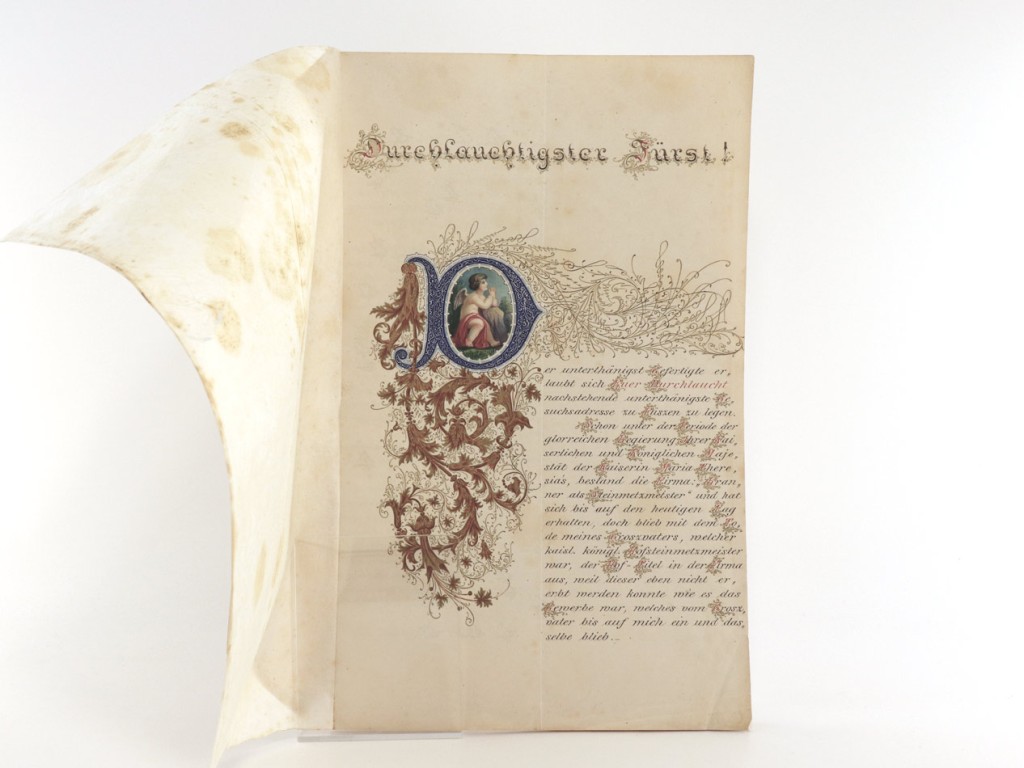 Durchlauchtigster Fürst!
Der unterthänigst Gefertigte er,
laubt sich Euer Durchlaucht
nachstehende unterthänigste Ge,
suchsadresse zu Füszen zu legen.
Schon unter der Periode der
glorreichen Regierung Ihrer Kai,
serlichen und Königlichen Maje,
stät der Kaiserin Maria There,
sias, bestand die Firma: "Gran,
ner als Steinmetzmeister" und hat
sich bis auf den heutigen Tag
erhalten, doch blieb mit dem To,
de meines Groszvaters, welcher
kaisl. königl. Hofsteinmetzmeister
war, der Hof-Titel in der Firma
aus, weil dieser eben nicht er,
erbt werden konnte wie es das
Gewerbe war, welches vom Grosz,
vater bis auf mich ein und das,
selbe blieb...